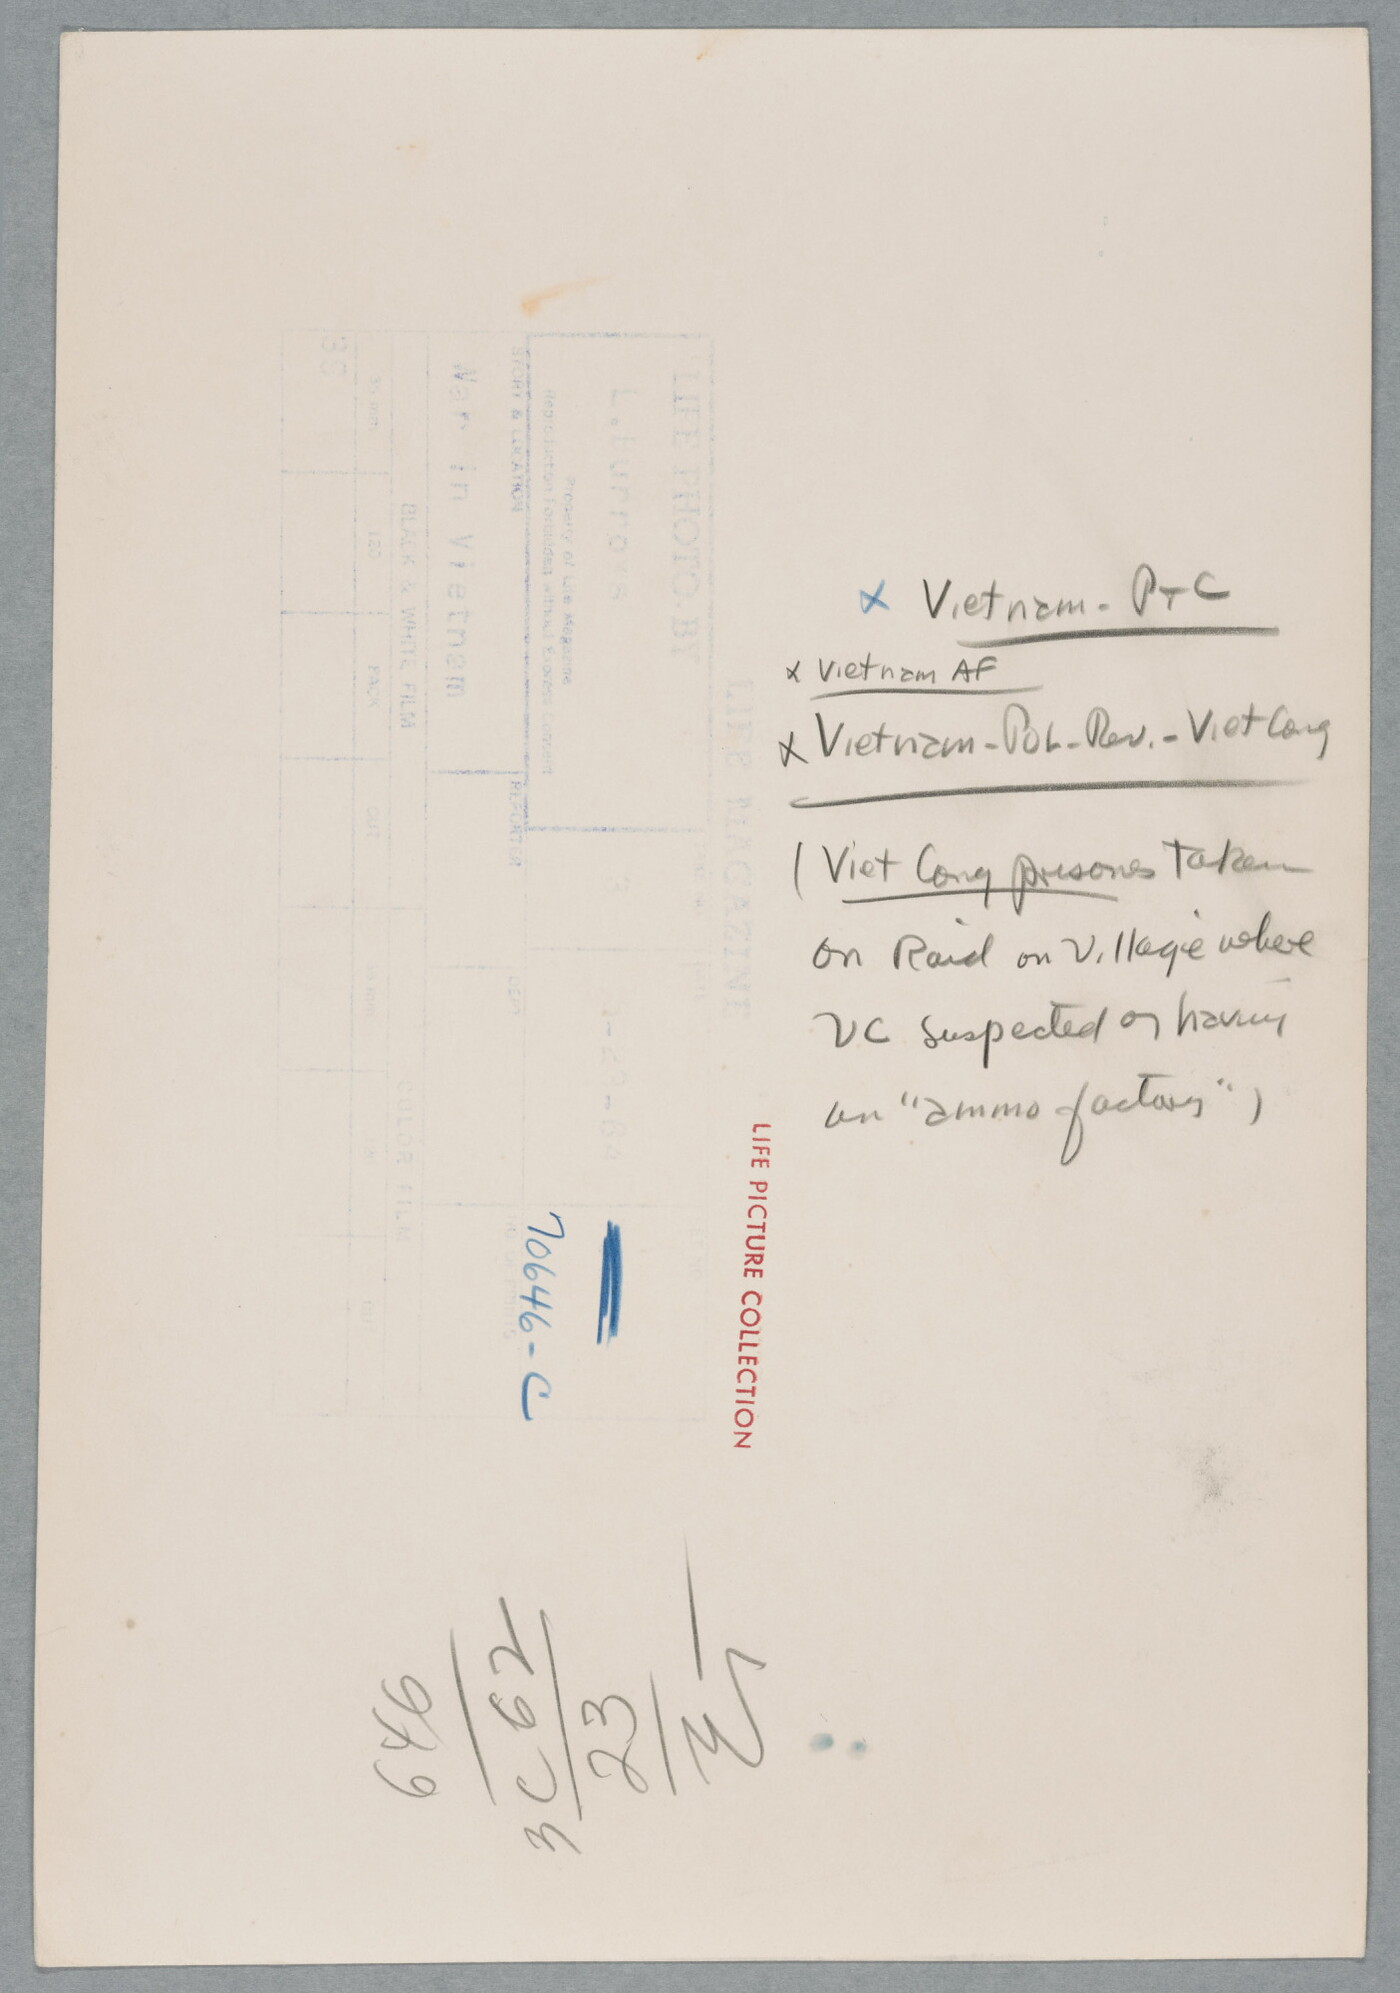 x Vietnam - P+C
x Vietnam AF
x Vietnam - Pol - Rev. - Viet Cong
( Viet Cong prisones taken
on Raid on Village where
VC suspected of having
an "ammo factory" )
LIFE MAGAZINE
LIFE PHOTO BY
L. Burrows
Property of Life Magazine
Reproduction Forbidden without Express Consent
STORY & LOCATION
REPORTER
DEPT
War in Vietnam
BLACK & WHITE FILM
COLOR FILM
35mm
120
PACK
CUT
LIFE PICTURE COLLECTION
70646-C
23
3C 62
646